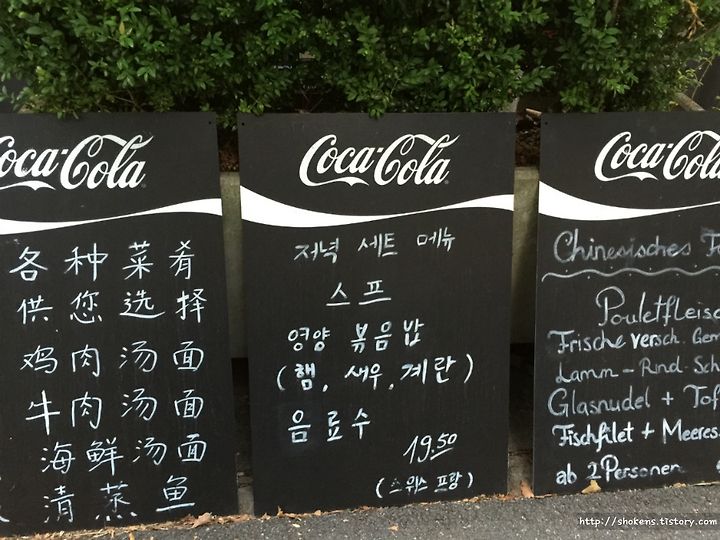 Coca-Cola
各种菜肴
供您选择
鸡肉汤面
牛肉汤面
海鲜汤面
清蒸鱼
Coca-Cola
저녁 세트 메뉴
스프
영양 볶음밥
(햄, 새우, 계란)
음료수
19.50
(스위스 프랑)
Coca-Cola
Chinesisches
Pouletfleisc
Frische versch. Gem
Lamm - Rind - Sch
Glasnudel + Tof
Fischfilet + Meeres
ab 2 Personen
http://shokens.tistory.com